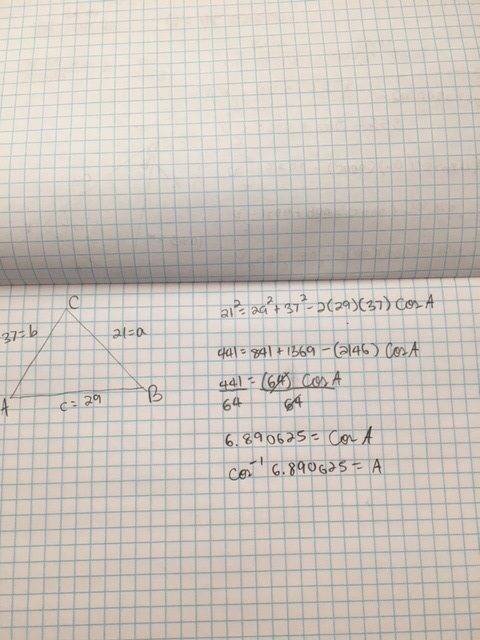 C
37=b
21=a
A
c=29
B
21²=29²+37²-2(29)(37) Cos A
441=841+1369-(2146) Cos A
441/64 = (64) Cos A/64
6.890625= Cos A
Cos⁻¹ 6.890625= A